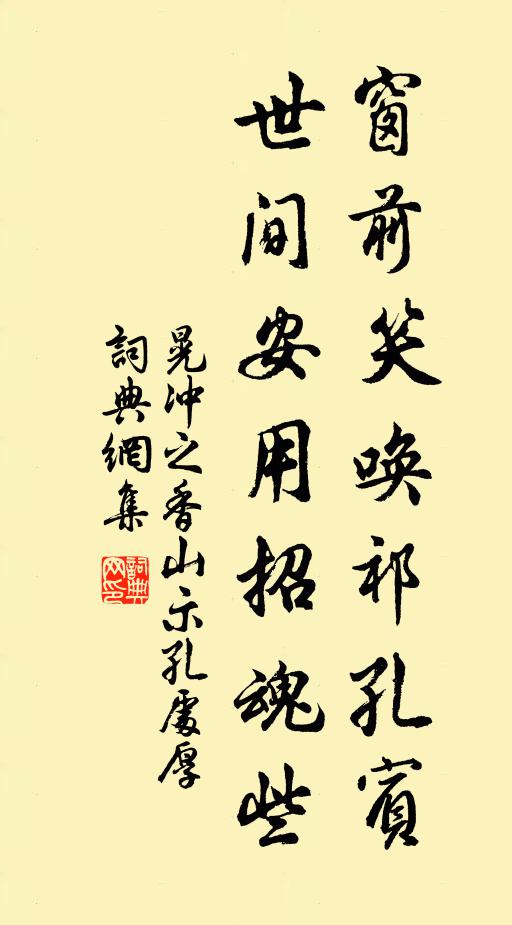 窗前笑唤祁孔賓
世间安用招魂些
晃冲之香山示孔處厚
詞典網集
詞典网印